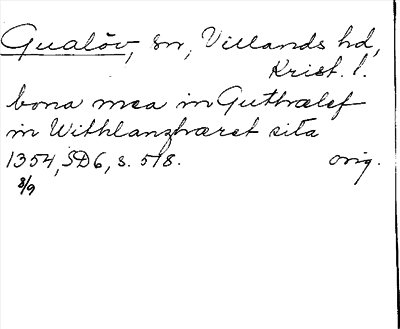 Gualöv, sn, Villands hd,
Krist. l.
bona mea in Guthælef
in Withlanzhæret sita
1354, SD6, s. 518. orig.
8/9